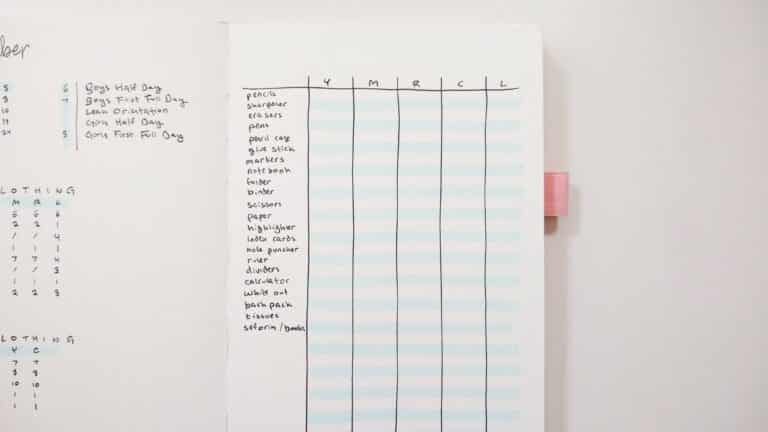 ber
5 6 Boys Half Day
8 7 Boys First Full Day
10 Leah Orientation
Girls Half Day
24 8 Girls First Full Day
LOTHING
M R L
5 6 6
2 2 1
/ / 4
1 1 1
7 7 4
/ / 3
1 1 1
2 2 3
LOTHING
Y C
7 7
8 8
10 10
1 1
1 1
Y M R C L
pencils
sharpener
erasers
pens
pencil case
glue stick
markers
notebook
folder
binder
scissors
paper
highligher
index cards
hole puncher
ruler
dividers
calculator
white out
backpack
tissues
seforim/books